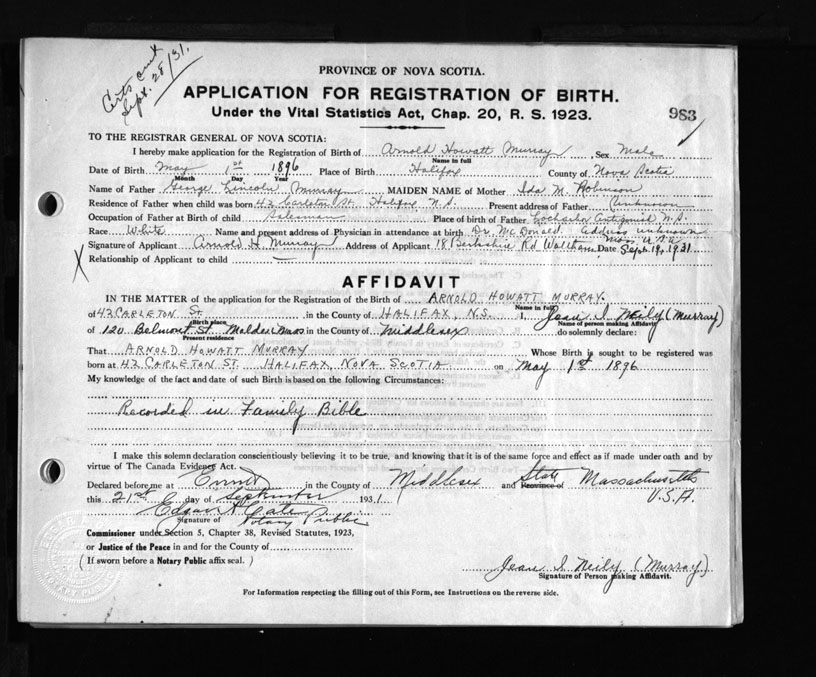 Certs. sent
Sept. 28/31.
PROVINCE OF NOVA SCOTIA.
APPLICATION FOR REGISTRATION OF BIRTH.
Under the Vital Statistics Act, Chap. 20, R. S. 1923.
983
TO THE REGISTRAR GENERAL OF NOVA SCOTIA:
I hereby make application for the Registration of Birth of Arnold Howatt Murray, Sex Male
Name in full
Date of Birth May 1st 1896 Place of Birth Halifax County of Nova Scotia
Month Day Year
Name of Father George Lincoln Murray MAIDEN NAME of Mother Ida M. Robinson
Residence of Father when child was born 42 Carleton St. Halifax, N.S. Present address of Father Unknown
Occupation of Father at Birth of child salesman Place of birth of Father, Lochaber Antigonish N.S.
Race White Name and present address of Physician in attendance at birth Dr. McDonald. Address unknown
Signature of Applicant Arnold H. Murray Address of Applicant 18 Berkshire Rd Waltham Mass. U.S.A. Date Sept. 19, 1931
Relationship of Applicant to child —
X
AFFIDAVIT
IN THE MATTER of the application for the Registration of the Birth of ARNOLD HOWATT MURRAY.
Name in full
of 42 CARLETON St. in the County of HALIFAX, N.S. I, Jean I. Neily (Murray)
Birth place Name of person making Affidavit
of 120 Belmont St. Malden Mass in the County of Middlesex do solemnly declare:
Present residence
That ARNOLD HOWATT MURRAY Whose Birth is sought to be registered was
born at 42 CARLETON ST. HALIFAX, NOVA SCOTIA on May 1st 1896
My knowledge of the fact and date of such Birth is based on the following Circumstances:
Recorded in Family Bible
I make this solemn declaration conscientiously believing it to be true, and knowing that it is of the same force and effect as if made under oath and by
virtue of The Canada Evidence Act.
Declared before me at Everett in the County of Middlesex and State Province of Massachusetts
this 21st day of September 1931 U.S.A.
Edgar
Signature of Notary Public
Commissioner under Section 5, Chapter 38, Revised Statutes, 1923,
or Justice of the Peace in and for the County of
( If sworn before a Notary Public affix seal. )
Jean I. Neily (Murray)
Signature of Person making Affidavit.
For Information respecting the filling out of this Form, see Instructions on the reverse side.